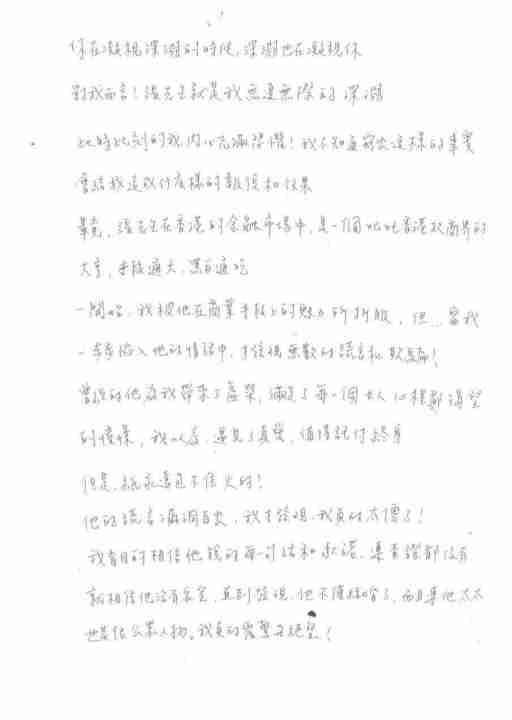 你在凝視深淵的時候,深淵也在凝視你
對我而言!張先生就是我無邊無際的深淵
此時此刻的我,內心充滿恐懼!我不知道寫出這樣的事實
會給我造成什麼樣的報復和後果
畢竟,張先生在香港的金融市場中,是一個叱吒香港款商界的
大亨,手段通天,黑白通吃
一開始,我被他在商業手段上的魅力所折服,但…當我
一步步陷入他的情話中,才發現無數的謊言和欺騙!
曾經的他為我帶來了虛榮,滿足了每一個女人心裡都渴望
的憧憬,我以為,遇見了真愛,值得託付終身
但是,紙永遠包不住火的!
他的謊言漏洞百出,我才發現,我真的太傻了!
我盲目的相信他說的每一句話和承諾,連查證都沒有
就相信他沒有家室,直到發現,他不僅結婚了,而且其他太太
也是位公眾人物。我真的震驚及絕望!